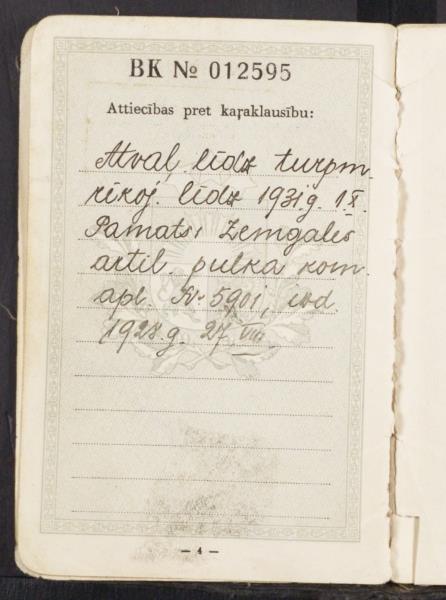 BK № 012595
Attiecības pret kaŗaklausību:
Atval. līdz turpm.
rīkoj. līdz 1931g. 1X.
Pamats: Zemgales
artil. pulka kom.
apl. № 5901, izd.
1928.g. 27 VIII
— 4 —